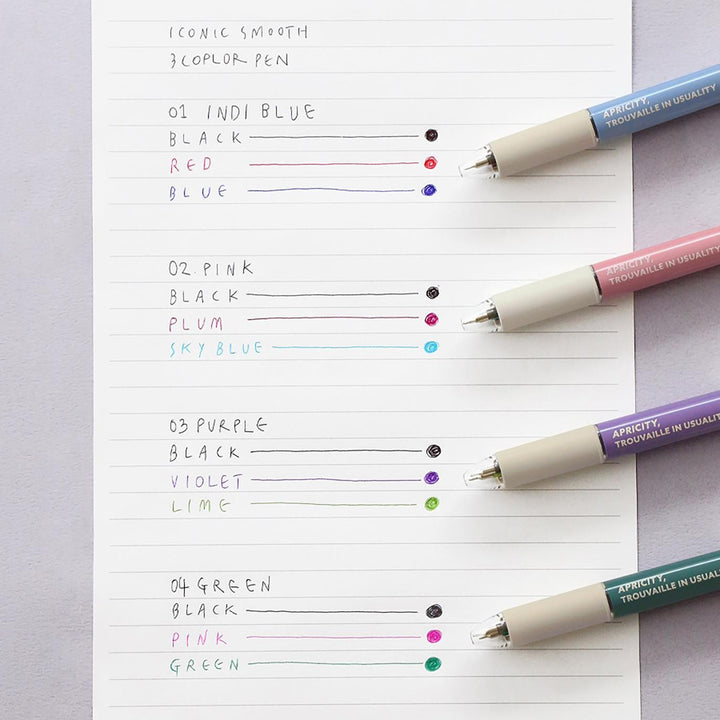 ICONIC SMOOTH
3COPLOR PEN
01 INDI BLUE
BLACK
RED
BLUE
APRICITY,
TROUVAILLE IN USUALITY
02. PINK
BLACK
PLUM
SKY BLUE
APRICITY,
TROUVAILLE IN USUALITY
03 PURPLE
BLACK
VIOLET
LIME
APRICITY,
TROUVAILLE IN USUALITY
04 GREEN
BLACK
PINK
GREEN
APRICITY,
TROUVAILLE IN USUAL